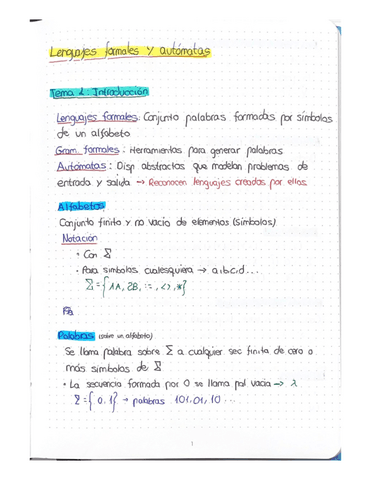 Lenguajes formales y autómatas
Tema 1: Introducción
Lenguajes formales: Conjunto palabras formadas por símbolos
de un alfabeto
Gram. formales: Herramientas para generar palabras
Autómatas: Disp. abstractos que modelan problemas de
entrada y salida → Reconocen lenguajes creados por ellas
Alfabetos:
Conjunto finito y no vacío de elementos (símbolos)
Notación
• Con Σ
• Para símbolos cualesquiera → a,b,c,d...
Σ = {1A, 2B, :=, <>, *}
Palabras: (sobre un alfabeto)
Se llama palabra sobre Σ a cualquier sec finita de cero o
más símbolos de Σ
• La secuencia formada por 0 se llama pal vacía → λ
Σ = {0,1} → palabras 101,01,10...
1